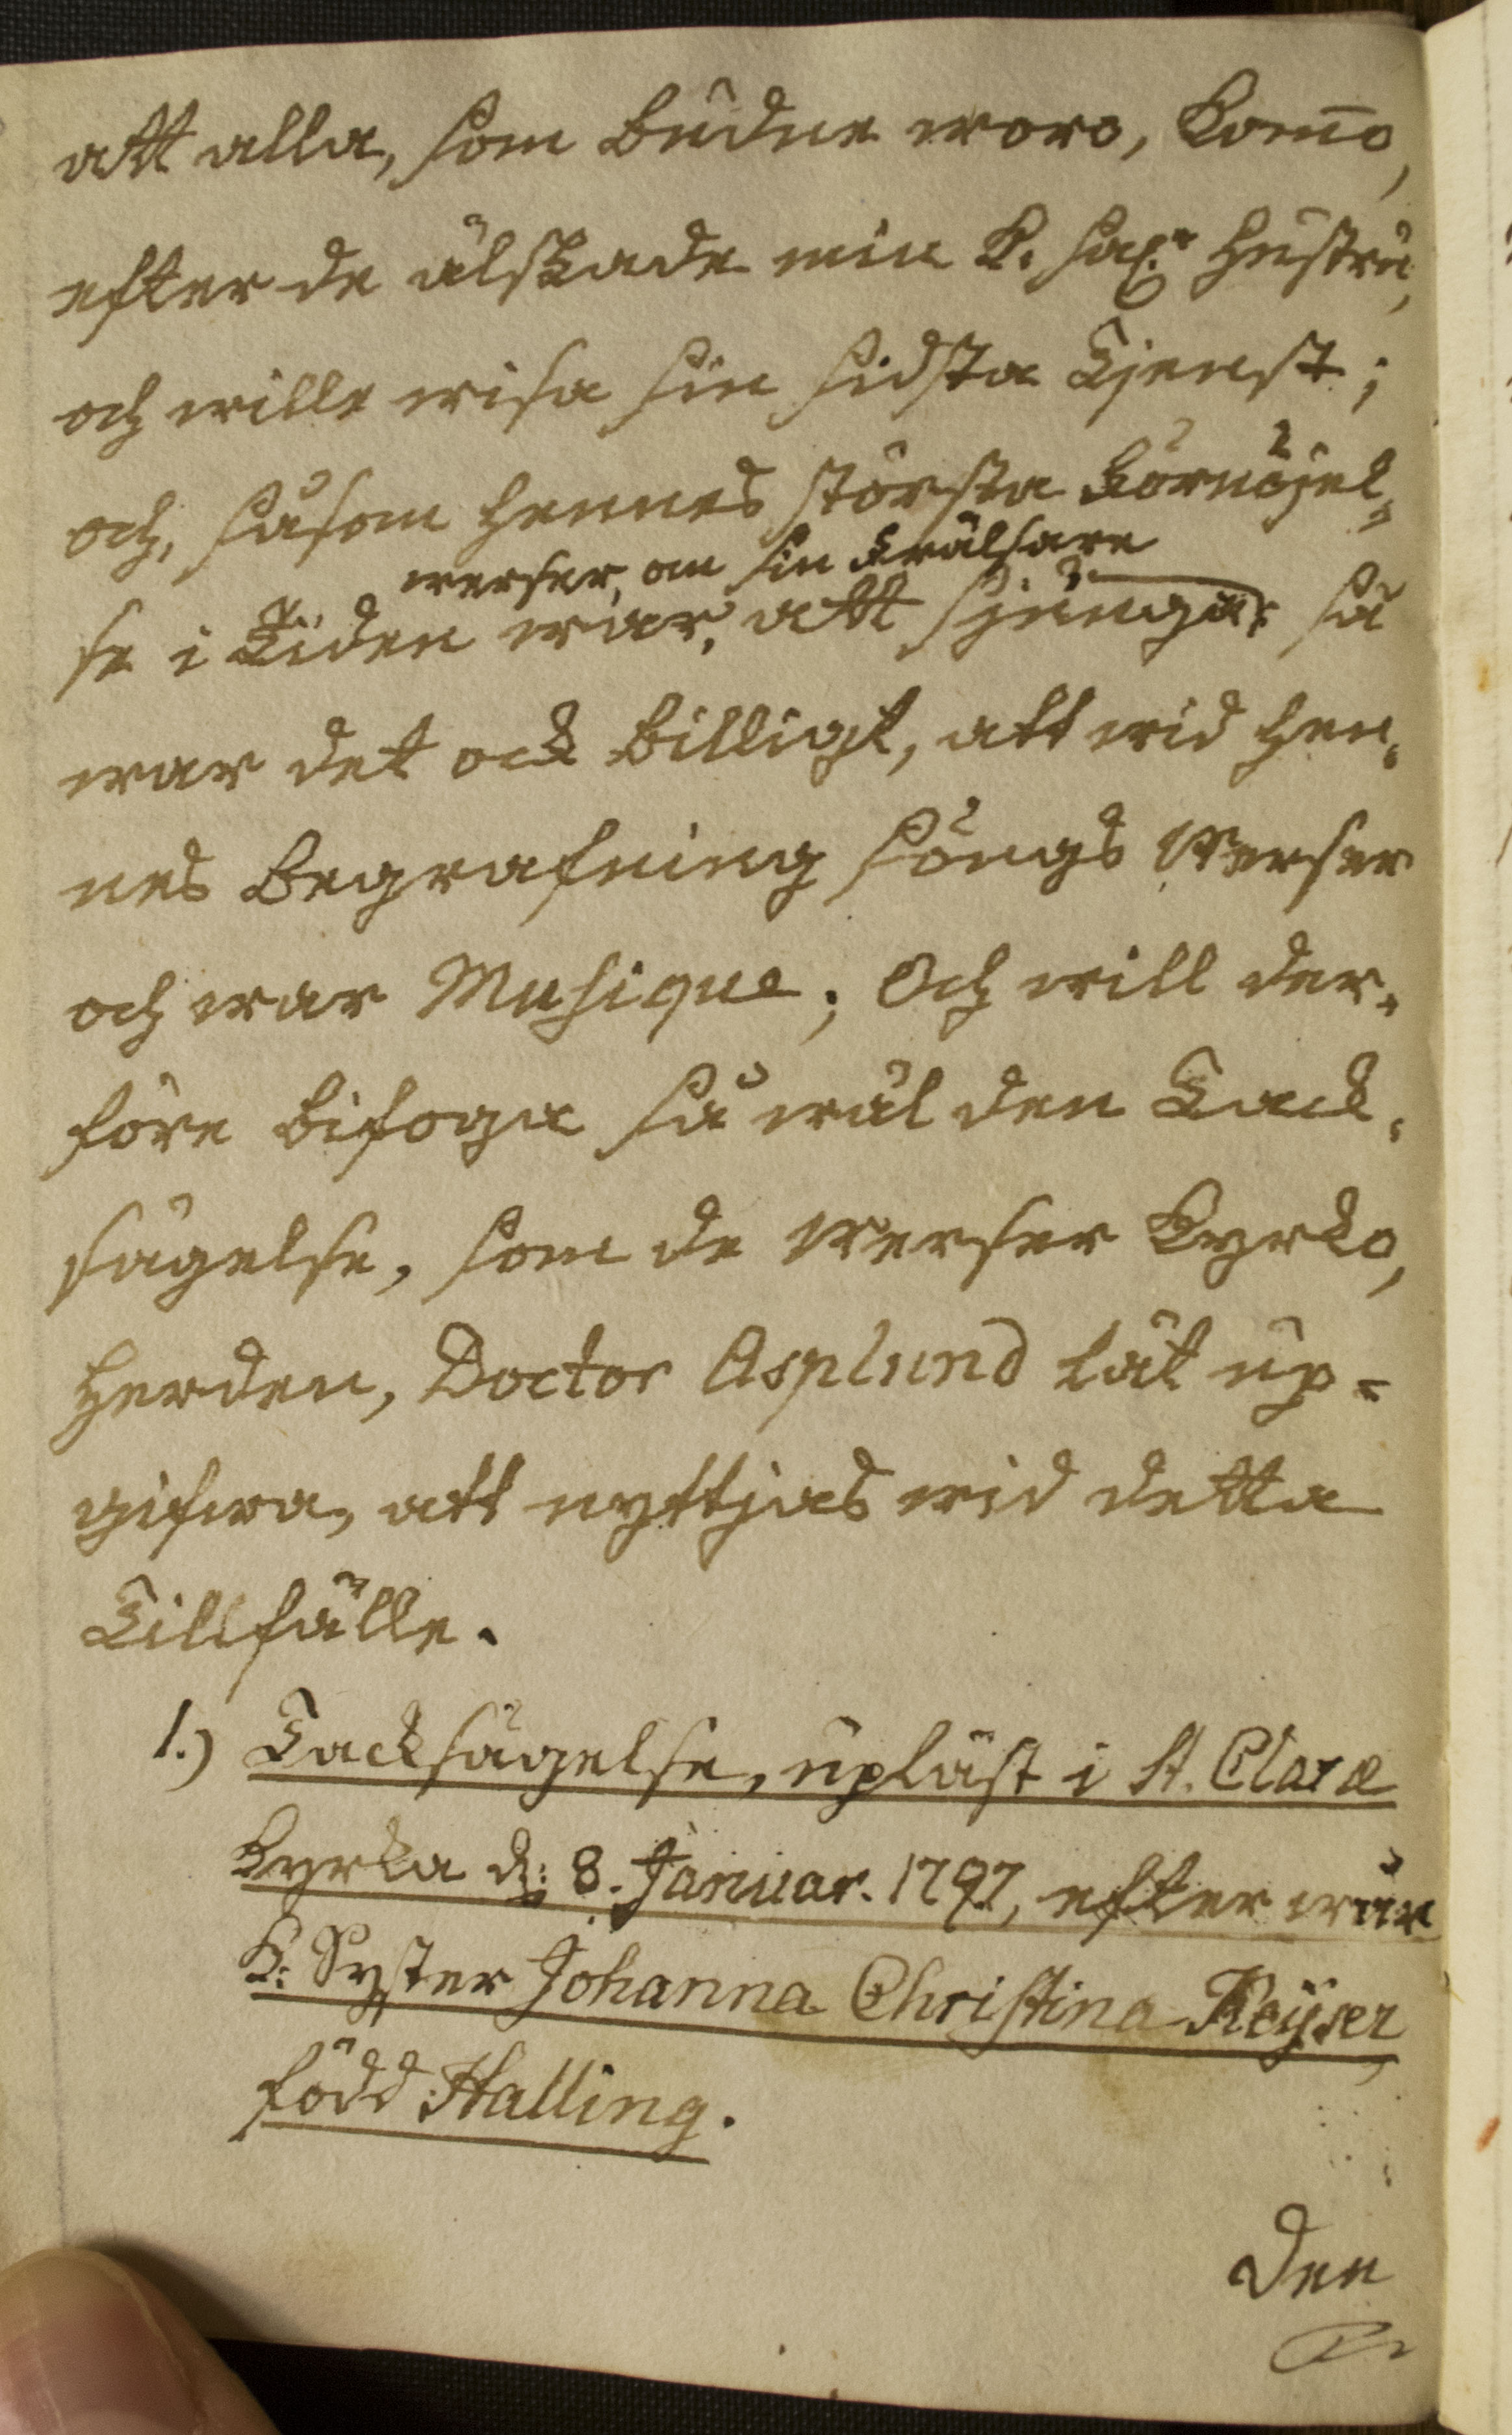 att alla, som budne woro, kom̄o,
efter de älskade min K. Sal. Hustru,
och wille wisa sin sidsta Tjenst;
och, såsom hennes största Förnöjel-
werser, om sin Frälsare
se i Tiden war, att sjunga; så
war det ock billigt, att wid hen-
nes Begrafning söngs Werser
och war Musique; Och will der-
före bifoga så wäl den Tack-
sägelse, som de Werser Kyrko-
herden, Doctor Asplund lät up-
gifwa, att nyttjas wid detta
Tillfälle.
1.) Tacksägelse, upläst i St. Claræ
Kyrka d: 8. Januar. 1797, efter wår
K: Syster Johanna Christina Keÿser,
född Halling.
Den